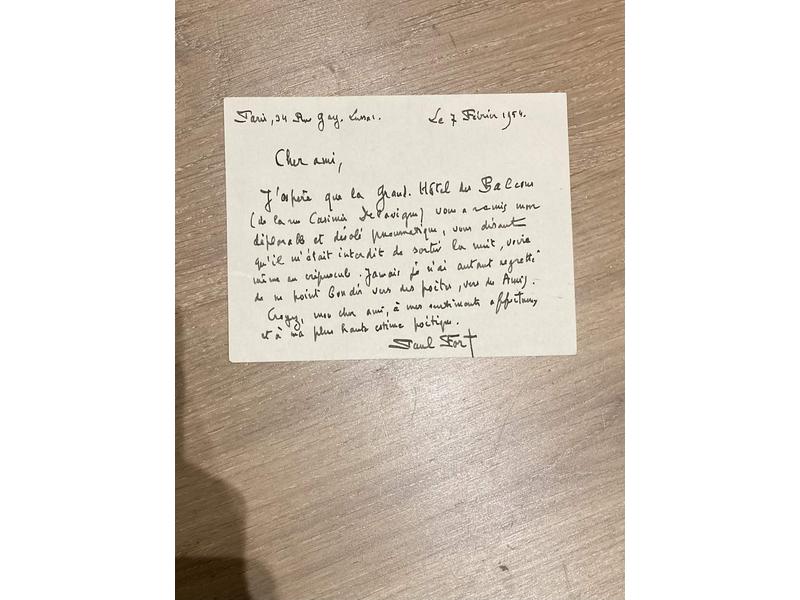 Paris, 34 Rue Gay-Lussac.
Le 7 Février 1954.
Cher ami,
J'espère que le Grand-Hôtel des Balcons
(de la rue Casimir Delavigne) vous a remis mon
déplorable et désolé pneumatique, vous disant
qu'il m'était interdit de sortir la nuit, voire
même au crépuscule. Jamais je n'ai autant regretté
de ne point bondir vers des poètes, vers des Amis.
Croyez, mon cher ami, à mes sentiments affectueux
et à ma plus haute estime poétique.
Paul Fort